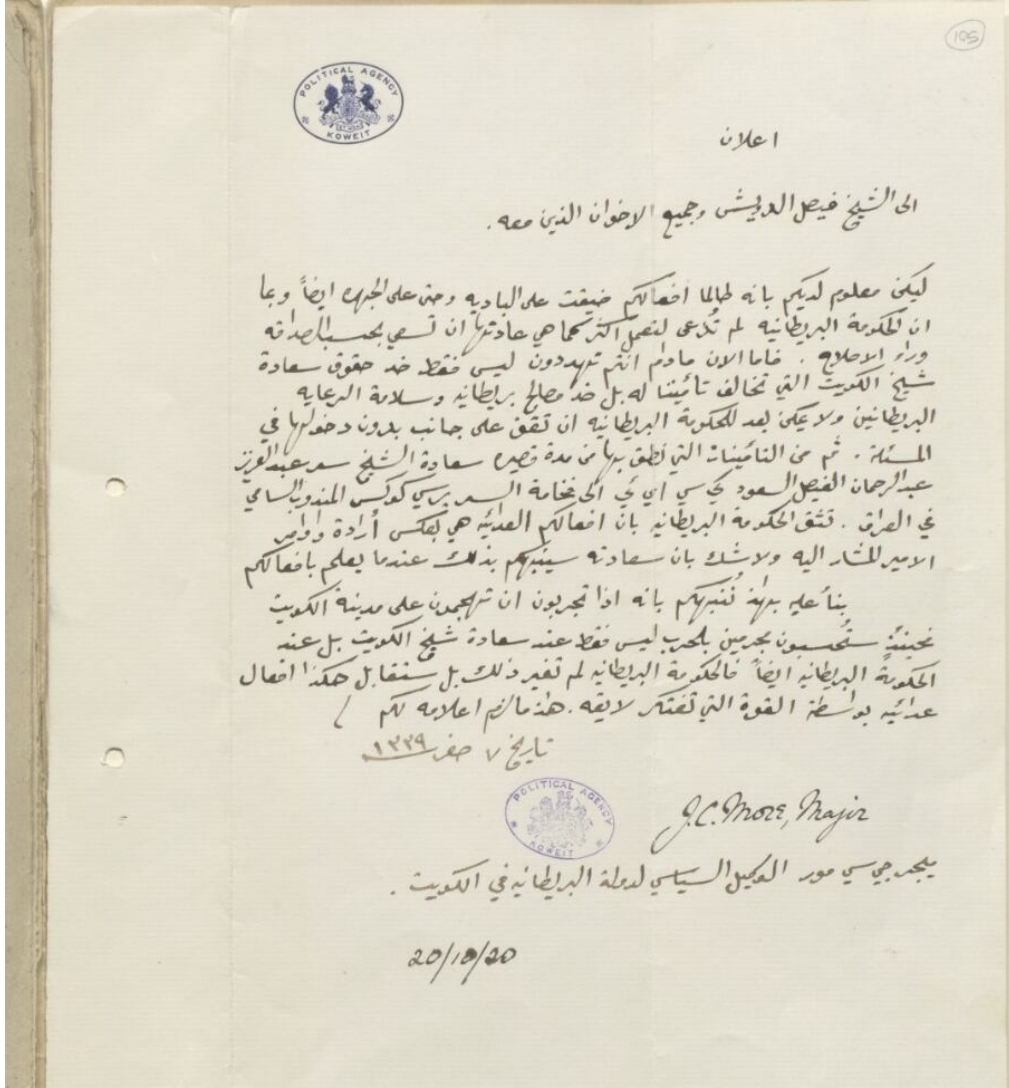 195
POLITICAL AGENCY
KOWEIT
اعلان
الى الشيخ فيصل الدويش وجميع الاخوان الذين معه .
ليكن معلوم لديكم بانه طالما افعالكم ضيقت على الباديه وحتى على الجهره ايضاً وبما
ان الحكومة البريطانيه لم تُدعى لتعمل اكثر كما هي عادتها ان تسعى بحسب الصداقه
وراء الاصلاح . فاما الان مادام انتم تهددون ليس فقط ضد حقوق سعادة
شيخ الكويت التي تخالف تأميننا له بل ضد مصالح بريطانيه وسلامة الرعايه
البريطانين ولا يمكن بعد للحكومة البريطانيه ان تقف على جانب بدون دخولها في
المسئلة . ثم من التأمينات التي نطق بها من مدة قصيره سعادة الشيخ سر عبد العزيز
عبد الرحمان الفيصل السعود كي سي اي ئي الى فخامة السر برسي كوكس المندوب السامي
في العراق . تثق الحكومة البريطانيه بان افعالكم العدائيه هي بعكس أرادة واوامر
الامير المشار اليه ولا شك بان سعادته سينبهكم بذلك عندما يعلم بافعالكم
بنأ عليه بهذا نُنبهكم بانه اذا تجربون ان تهجمون على مدينة الكويت
فحينئذٍ ستُحسبون مجرمين بالحرب ليس فقط عند سعادة شيخ الكويت بل عند
الحكومة البريطانيه ايضاً فالحكومة البريطانيه لم تغير ذلك بل ستقابل هكذا افعال
عدائيه بواسطة القوة التي تفتكر لايقه . هذا ما لزم اعلامه لكم /
تاريخ ٧ صفر ١٣٣٩
POLITICAL AGENCY
KOWEIT
J.C. More, Major
ميجر جي سي مور الوكيل السياسي لدولة البريطانيه في الكويت .
20/10/20